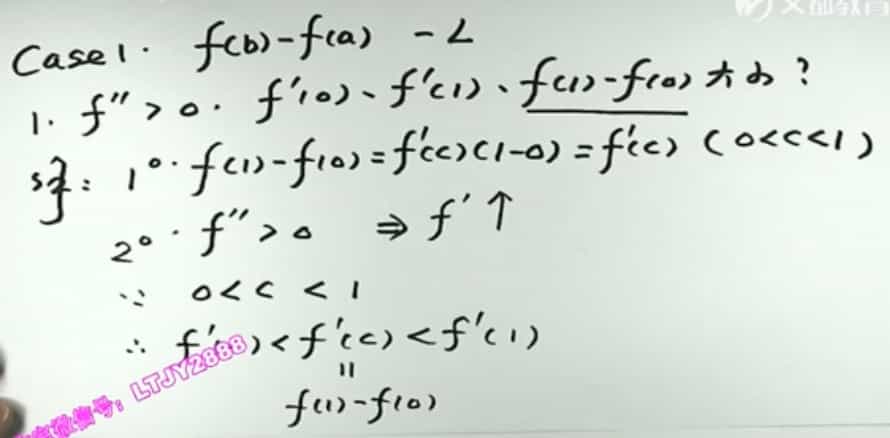 文都教育
Case 1. f(b)-f(a) -L
1. f">0. f'(0)、f'(1)、f(1)-f(0)大小?
解: 1°. f(1)-f(0)=f'(c)(1-0)=f'(c) (0<c<1)
2°. f">0 ⇒ f'↑
∵ 0<c<1
∴ f'(0)<f'(c)<f'(1)
=
f(1)-f(0)
微信号: LTJY2888